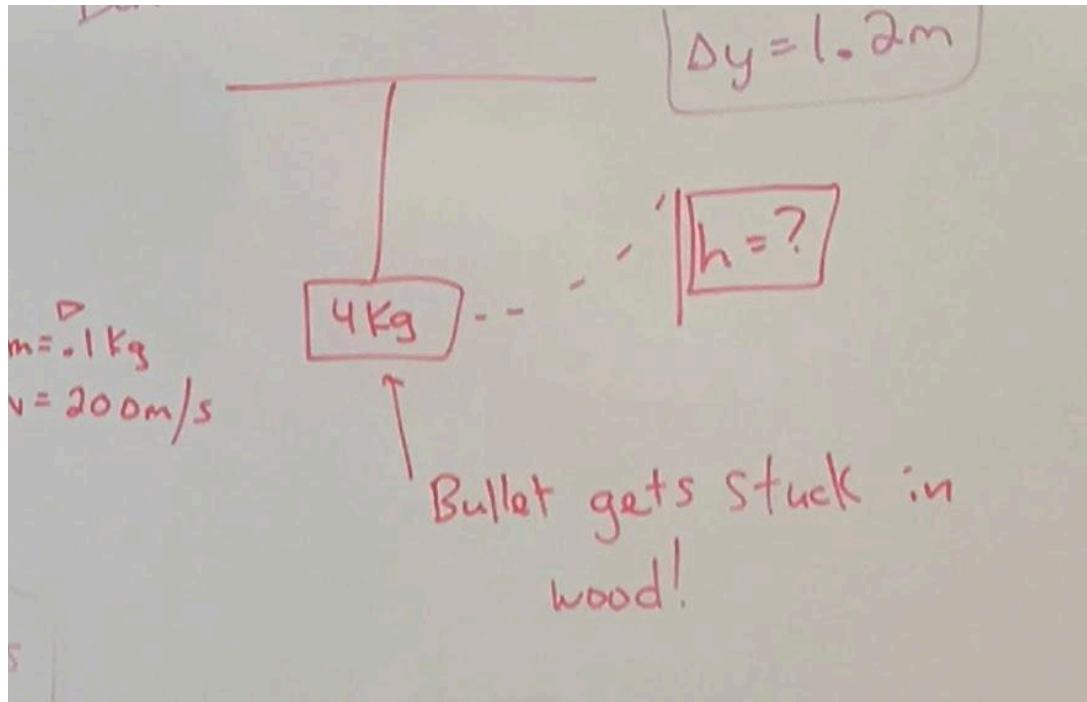 Δy = 1.2m
h = ?
4Kg
m = .1 Kg
v = 200m/s
Bullet gets stuck in
wood!